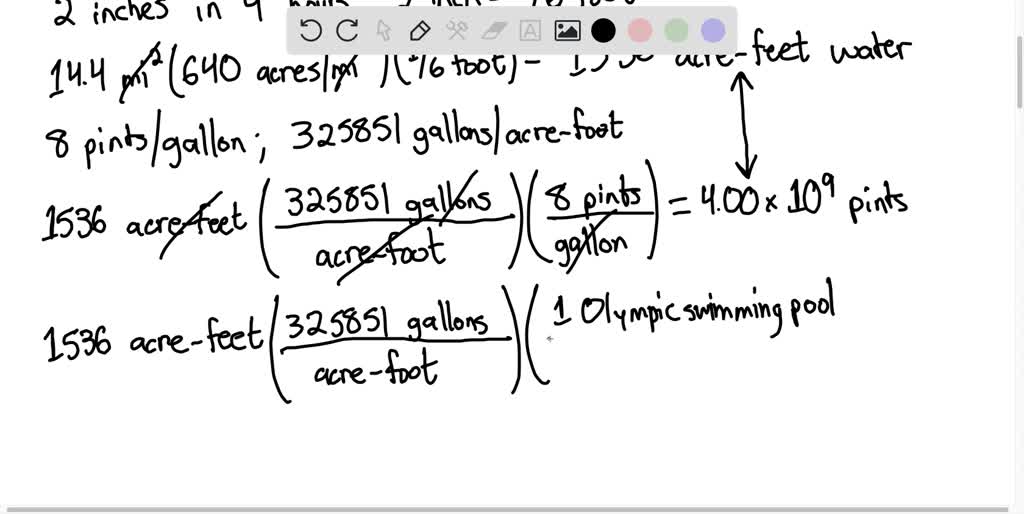 2 inches in 4
14.4 mi² (640 acres/mi² )(1/6 foot) = 1536 acre-feet water
8 pints/gallon; 325851 gallons/acre-foot
1536 acre-feet (325851 gallons / acre-foot)(8 pints / gallon) = 4.00 × 10⁹ pints
1536 acre-feet (325851 gallons / acre-foot)(1 Olympic swimming pool